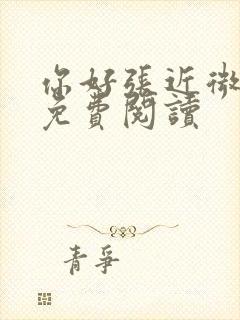 你好張近微
免費閱讀
青爭